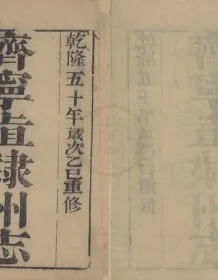 乾隆五十年歲次乙巳重修
濟寧直隸州志